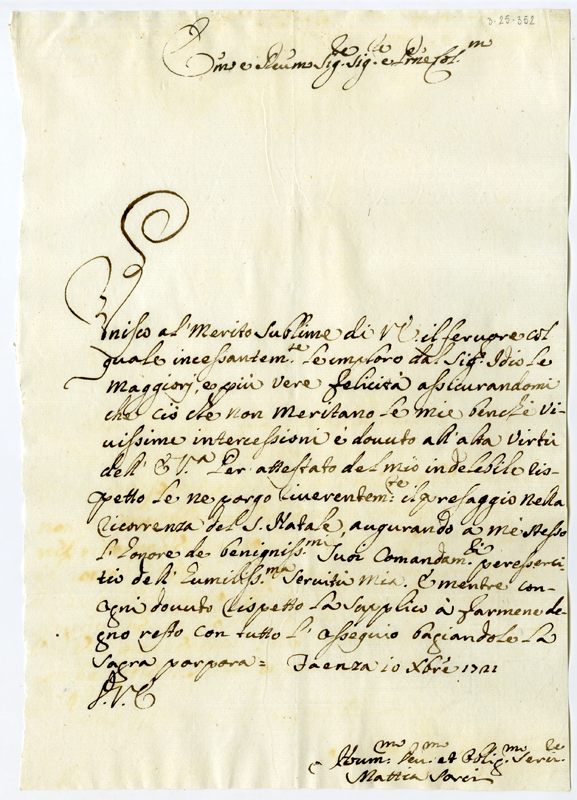 3-25-352
Em.o e Reu.mo Sig.re Sig.re e P.rone Col.mo
Vnisco al' Merito Sublime di V.E. il feruore col
quale incessantem.te le imploro dal Sig.r Idio le
Maggiorj, e più vere felicità assicurandomi
che ciò che non Meritano le mie benche vi-
uissime intercessioni è douuto all'alta Virtù
dell' E.V.a Per attestato del mio indelebile ris-
petto le ne porgo riuerentem.te il presaggio nella
ricorrenza del S. Natale, augurando a mè stesso
l'honore de benigniss.mi Suoi Comandam.ti per esserci
tio dell' humiliss.ma Seruitù mia. E mentre con-
ogni douuto rispetto la Supplico à farmene de-
gno resto con tutto l'ossequio bagiandole la
Sagra porpora = Faenza 10 Xbre 1721
D.V.E.
Hum.mo Deu.mo et Oblig.mo Seru.re
Mattia